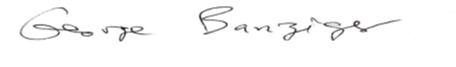 George Banziger